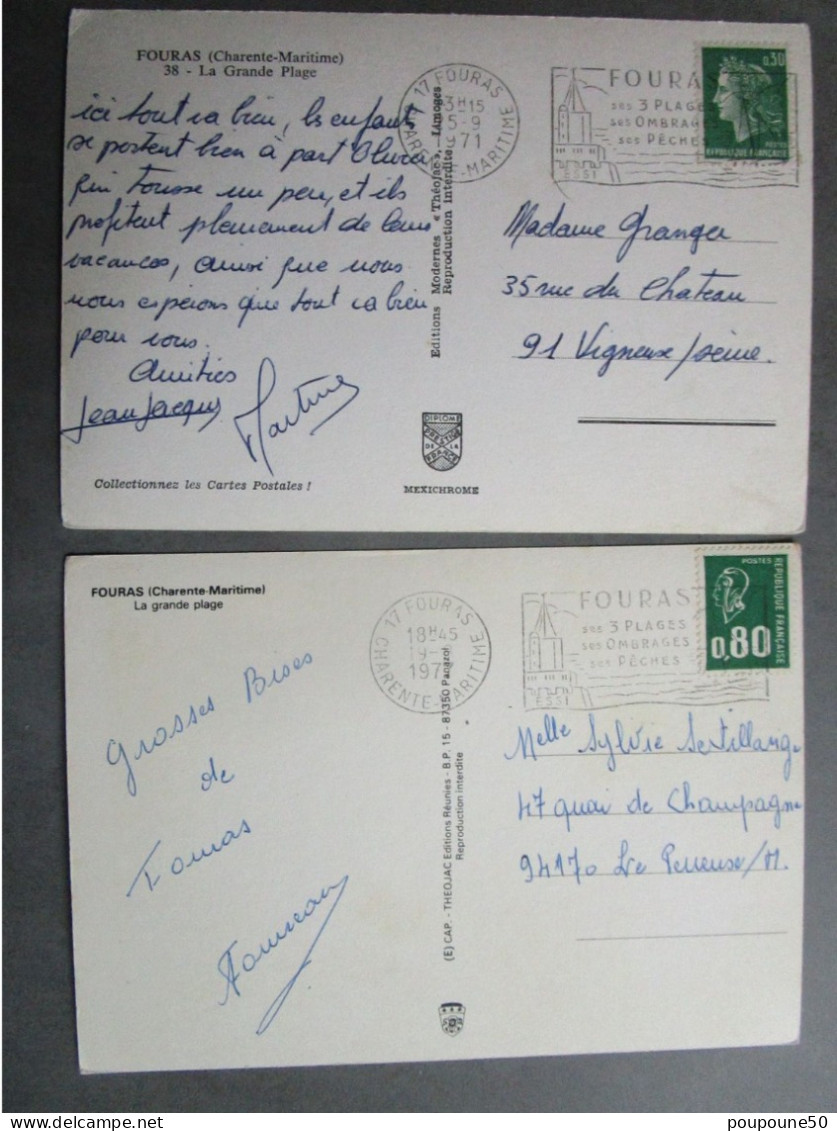 FOURAS (Charente-Maritime)
38 - La Grande Plage
ici tout va bien, les enfants
se portent bien à part Olivier
qui tousse un peu, et ils
profitent pleinement de leurs
vacances, ainsi que nous
nous espérons que tout va bien
pour vous.
Amitiés
Jean Jacques
Martine
Collectionnez les Cartes Postales !
Editions Modernes « Théojac », Limoges
Reproduction Interdite
DIPLOME
PRESTIGE
DE LA
FRANCE
MEXICHROME
17 FOURAS
CHARENTE-MARITIME
15-9
1971
FOURAS
ses 3 PLAGES
ses OMBRAGES
ses PÊCHES
ESSI
0,30
POSTES
REPUBLIQUE FRANÇAISE
Madame Granger
35 rue du Chateau
91 Vigneux/seine.
FOURAS (Charente-Maritime)
La grande plage
Grosses Bises
de
Tomas
(E) CAP. - THEOJAC Editions Réunies - B.P. 15 - 87350 Panazol
Reproduction interdite
17 FOURAS
CHARENTE-MARITIME
18H45
19-
197
FOURAS
ses 3 PLAGES
ses OMBRAGES
ses PÊCHES
ESSI
POSTES
REPUBLIQUE FRANÇAISE
0,80
Melle Sylvie
47 quai de Champagne
94170 Le Perreux/M.
poupoune50